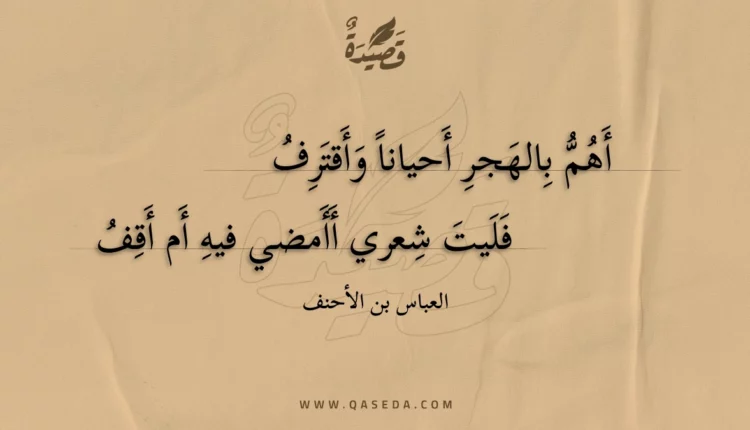 قَصِيدَةٌ
أَهُمُّ بِالهَجرِ أَحياناً وَأَقتَرِفُ
فَلَيتَ شِعري أَأَمضي فيهِ أَم أَقِفُ
العباس بن الأحنف
WWW.QASEDA.COM